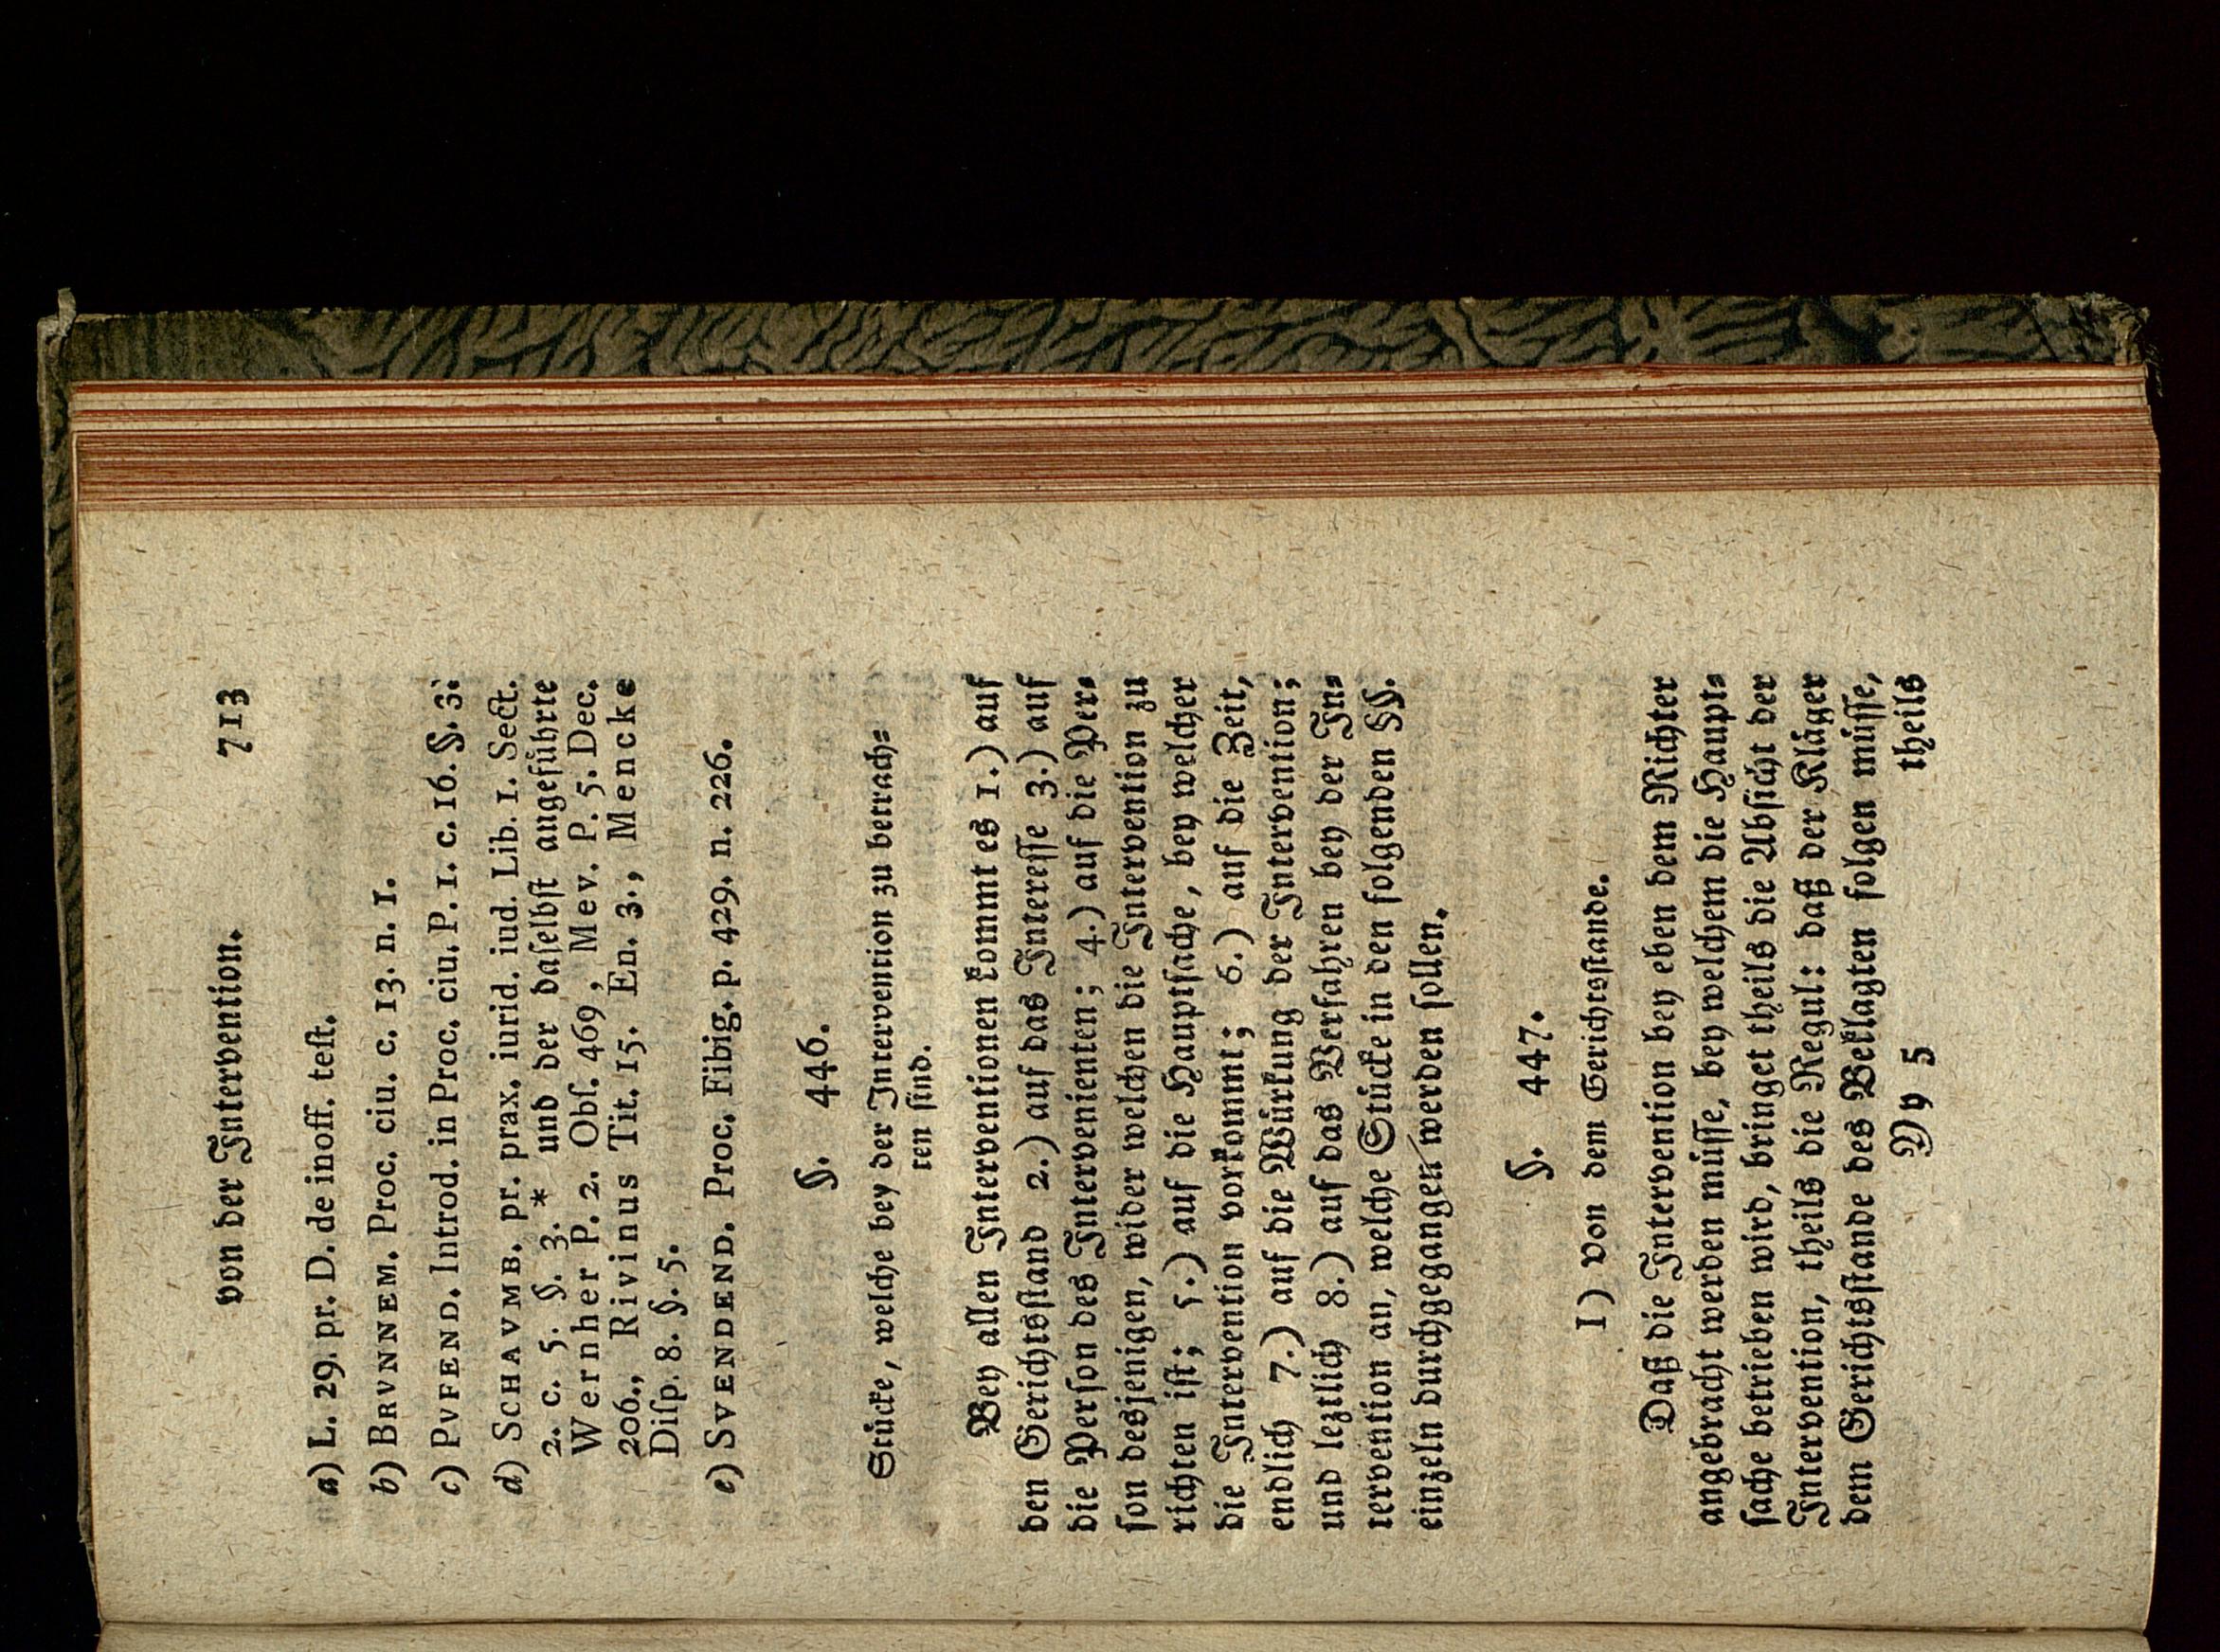 von der Intervention. 713
a) L. 29. pr. D. de inoff. teſt.
b) BRVNNEM. Proc. ciu. c. 13. n. 1.
c) PVFEND. Introd. in Proc. ciu. P. 1. c. 16. §. 3.
d) SCHAVMB. pr. prax. iurid. iud. Lib. 1. Sect.
2. c. 5. §. 3.* und der daſelbſt angefuͤhrte
Wernher P. 2. Obſ. 469, Mev. P. 5. Dec.
206., Rivinus Tit. 15. En. 3., Mencke
Diſp. 8. §. 5.
e) SVENDEND. Proc. Fibig. p. 429. n. 226.
§. 446.
Stuͤcke, welche bey der Intervention zu betrach⸗
ten ſind.
Bey allen Interventionen kommt es 1.) auf
den Gerichtsſtand 2.) auf das Intereſſe 3.) auf
die Perſon des Intervenienten; 4.) auf die Per⸗
ſon desjenigen, wider welchen die Intervention zu
richten iſt; 5.) auf die Hauptſache, bey welcher
die Intervention vorkommt; 6.) auf die Zeit,
endlich 7.) auf die Wuͤrkung der Intervention;
und leztlich 8.) auf das Verfahren bey der In⸗
tervention an, welche Stuͤcke in den folgenden §§.
einzeln durchgegangen werden ſollen.
§. 447.
I) Von dem Gerichtsſtande.
Daß die Intervention bey eben dem Richter
angebracht werden muͤſſe, bey welchem die Haupt⸗
ſache betrieben wird, bringet theils die Abſicht der
Intervention, theils die Regul: daß der Klaͤger
dem Gerichtsſtande des Beklagten folgen muͤſſe,
Yy 5 theils